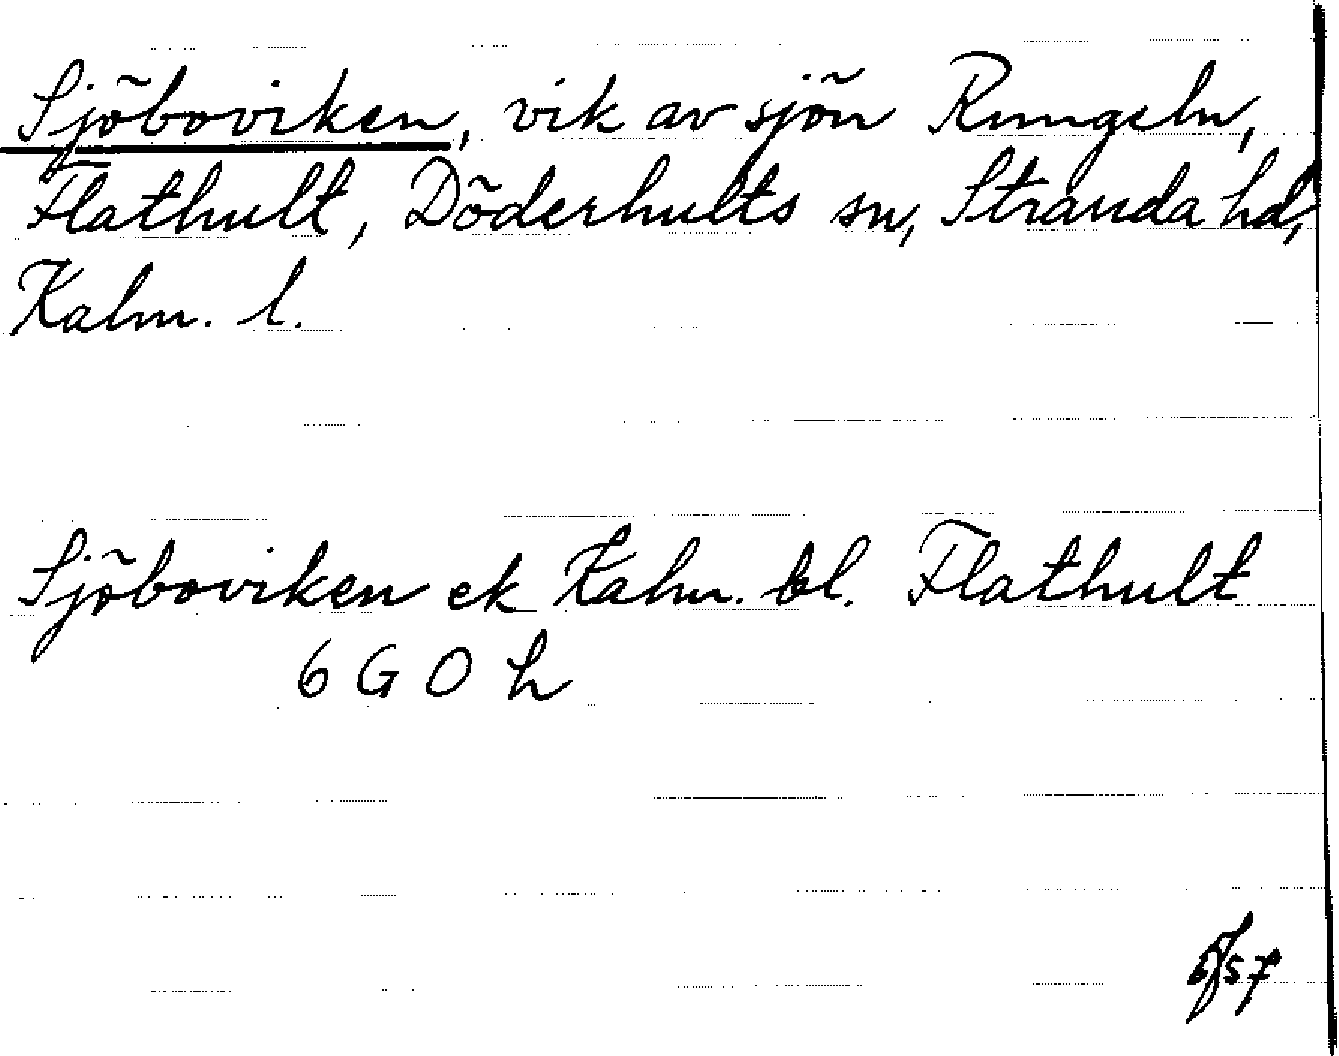 Sjöboviken, vik av sjön Rungeln,
Flathult, Döderhults sn, Stranda hd,
Kalm. l.
Sjöboviken ek Kalm. bl. Flathult
6 G O h